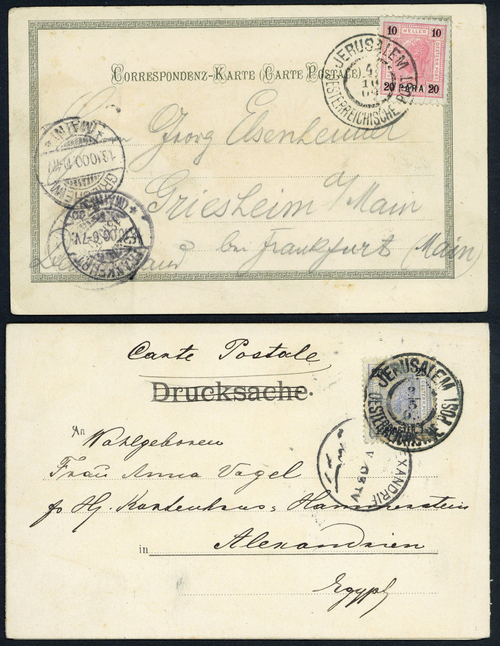 10 HELLER 10
20 PARA 20
JERUSALEM
OESTERREICHISCHE POST
CORRESPONDENZ-KARTE (CARTE POSTALE)
Georg
Griesheim a/Main
bei Frankfurt (Main)
GRIESHEIM
(MAIN)
FRANKFURT
(MAIN)
Carte Postale
Drucksache.
JERUSALEM
OESTERREICHISCHE POST
An
Wohlgeboren
Frau Anna Vogel
ALEXANDRIE
in Alexandrien
Egypt